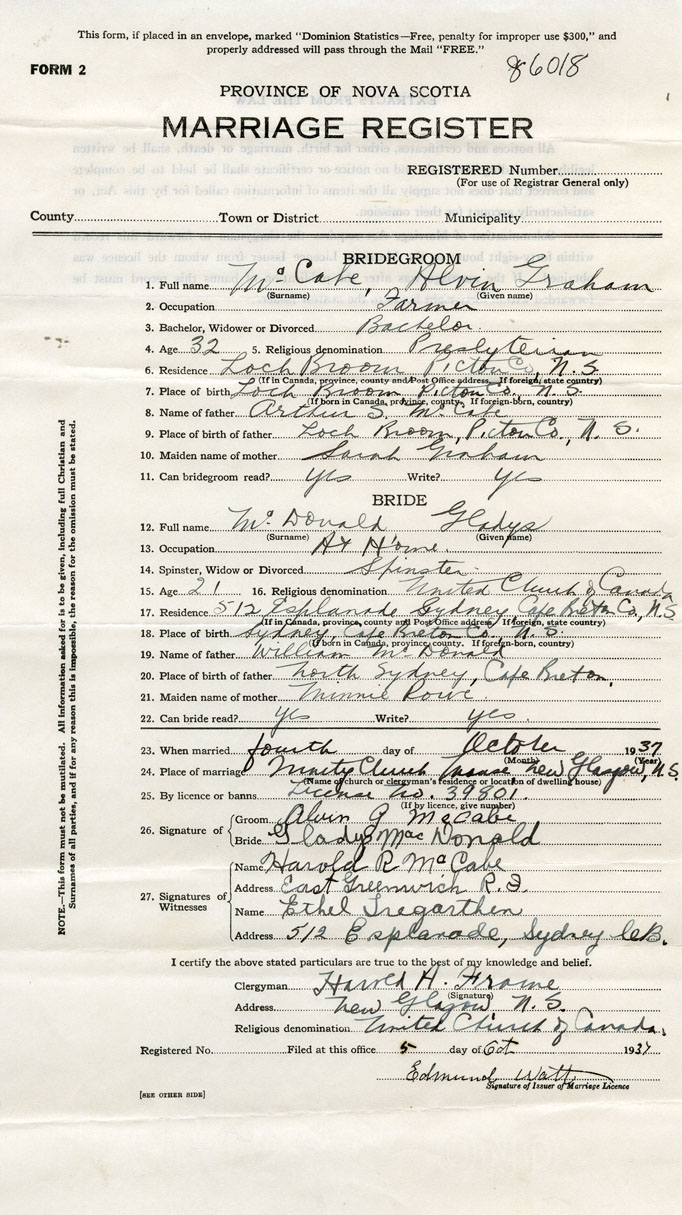 This form, if placed in an envelope, marked "Dominion Statistics—Free, penalty for improper use $300," and
properly addressed will pass through the Mail "FREE."
FORM 2
86018
PROVINCE OF NOVA SCOTIA
MARRIAGE REGISTER
REGISTERED Number
(For use of Registrar General only)
County Town or District Municipality
BRIDEGROOM
1. Full name McCabe, Alvin Graham
(Surname) (Given name)
2. Occupation Farmer
3. Bachelor, Widower or Divorced Bachelor.
4. Age 32 5. Religious denomination Presbyterian
6. Residence Loch Broom Pictou Co., N.S.
(If in Canada, province, county and Post Office address. If foreign, state country)
7. Place of birth Loch Broom Pictou Co., N.S.
(If born in Canada, province, county. If foreign-born, country)
8. Name of father Arthur S. McCabe
9. Place of birth of father Loch Broom, Pictou Co., N.S.
10. Maiden name of mother Sarah Graham
11. Can bridegroom read? Yes Write? Yes
BRIDE
12. Full name McDonald Gladys
(Surname) (Given name)
13. Occupation At Home.
14. Spinster, Widow or Divorced Spinster.
15. Age 21 16. Religious denomination United Church of Canada
17. Residence 512 Esplanade Sydney, Cape Breton Co., N.S
(If in Canada, province, county and Post Office address. If foreign, state country)
18. Place of birth Sydney, Cape Breton Co., N.S.
(If born in Canada, province, county. If foreign-born, country)
19. Name of father William McDonald
20. Place of birth of father North Sydney, Cape Breton.
21. Maiden name of mother Minnie Rowe.
22. Can bride read? Yes Write? Yes.
23. When married fourth day of October 1937
(Month) (Year)
24. Place of marriage Church Manse New Glasgow, N.S.
(Name of church or clergyman's residence or location of dwelling house)
25. By licence or banns License No. 39801.
(If by licence, give number)
26. Signature of
Groom Alvin G McCabe
Bride Gladys MacDonald
27. Signatures of Witnesses
Name Harold R McCabe
Address East Greenwich R.I.
Name Ethel Tregarthen
Address 512 Esplanade, Sydney C.B.
I certify the above stated particulars are true to the best of my knowledge and belief.
Clergyman Harold H. Frame
(Signature)
Address New Glasgow N.S.
Religious denomination United Church of Canada.
Registered No. Filed at this office 5 day of Oct 1937
Edmund Watt
Signature of Issuer of Marriage Licence
[SEE OTHER SIDE]
NOTE.—This form must not be mutilated. All information asked for is to be given, including full Christian and
Surnames of all parties, and if for any reason this is impossible, the reason for the omission must be stated.